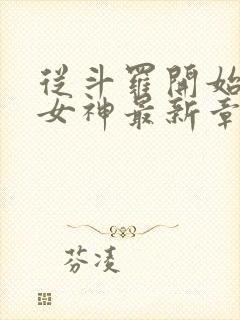 從斗羅開始
女神最新章
芬凌